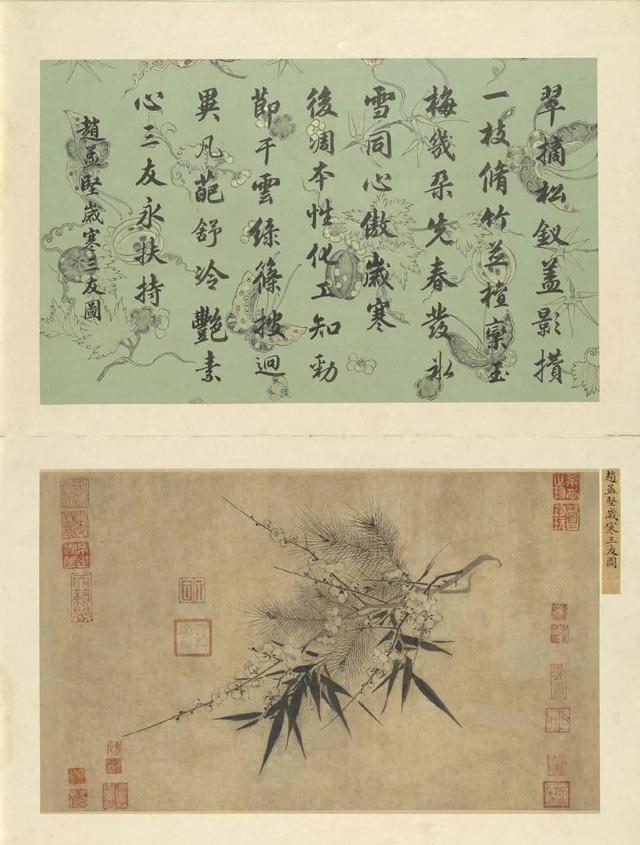 翠摘松釵蓋影攢
一枝脩竹並檀欒玉
梅幾朵先春發冰
雪同心傲歲寒
後凋本性化工知勁
節干雲綠篠披迥
異凡葩舒冷豔素
心三友永扶持
趙孟堅歲寒三友圖
趙孟堅歲寒三友圖